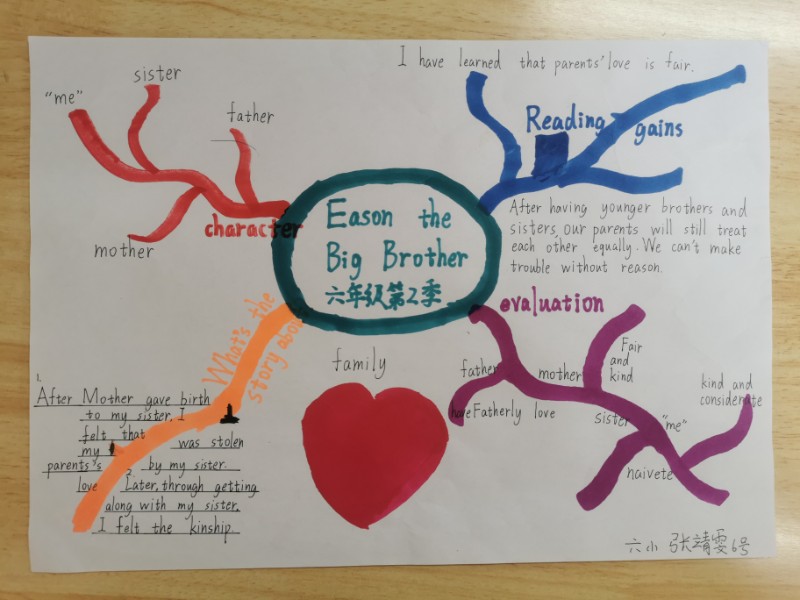 I have learned that parents' love is fair.
sister
"me"
father
Reading gains
character
mother
Eason the
Big Brother
六年级第2季
After having younger brothers and
sisters, our parents will still treat
each other equally. We can't make
trouble without reason.
evaluation
What's the
story about
family
father
mother
Fair
and
kind
kind and
considerate
have Fatherly love
sister
"me"
naivete
1.
After Mother gave birth
to my sister, I
felt that
my
was stolen
parents's
by my sister.
love
2.
Later, through getting
along with my sister,
I felt the kinship.
六小 张靖雯6号